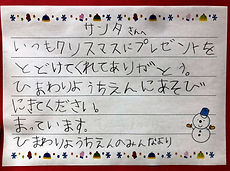 サンタさんへ
いつもクリスマスにプレゼントを
とどけてくれてありがとう。
ひまわりようちえんにあそび
にきてください。
まっています。
ひまわりようちえんのみんなより